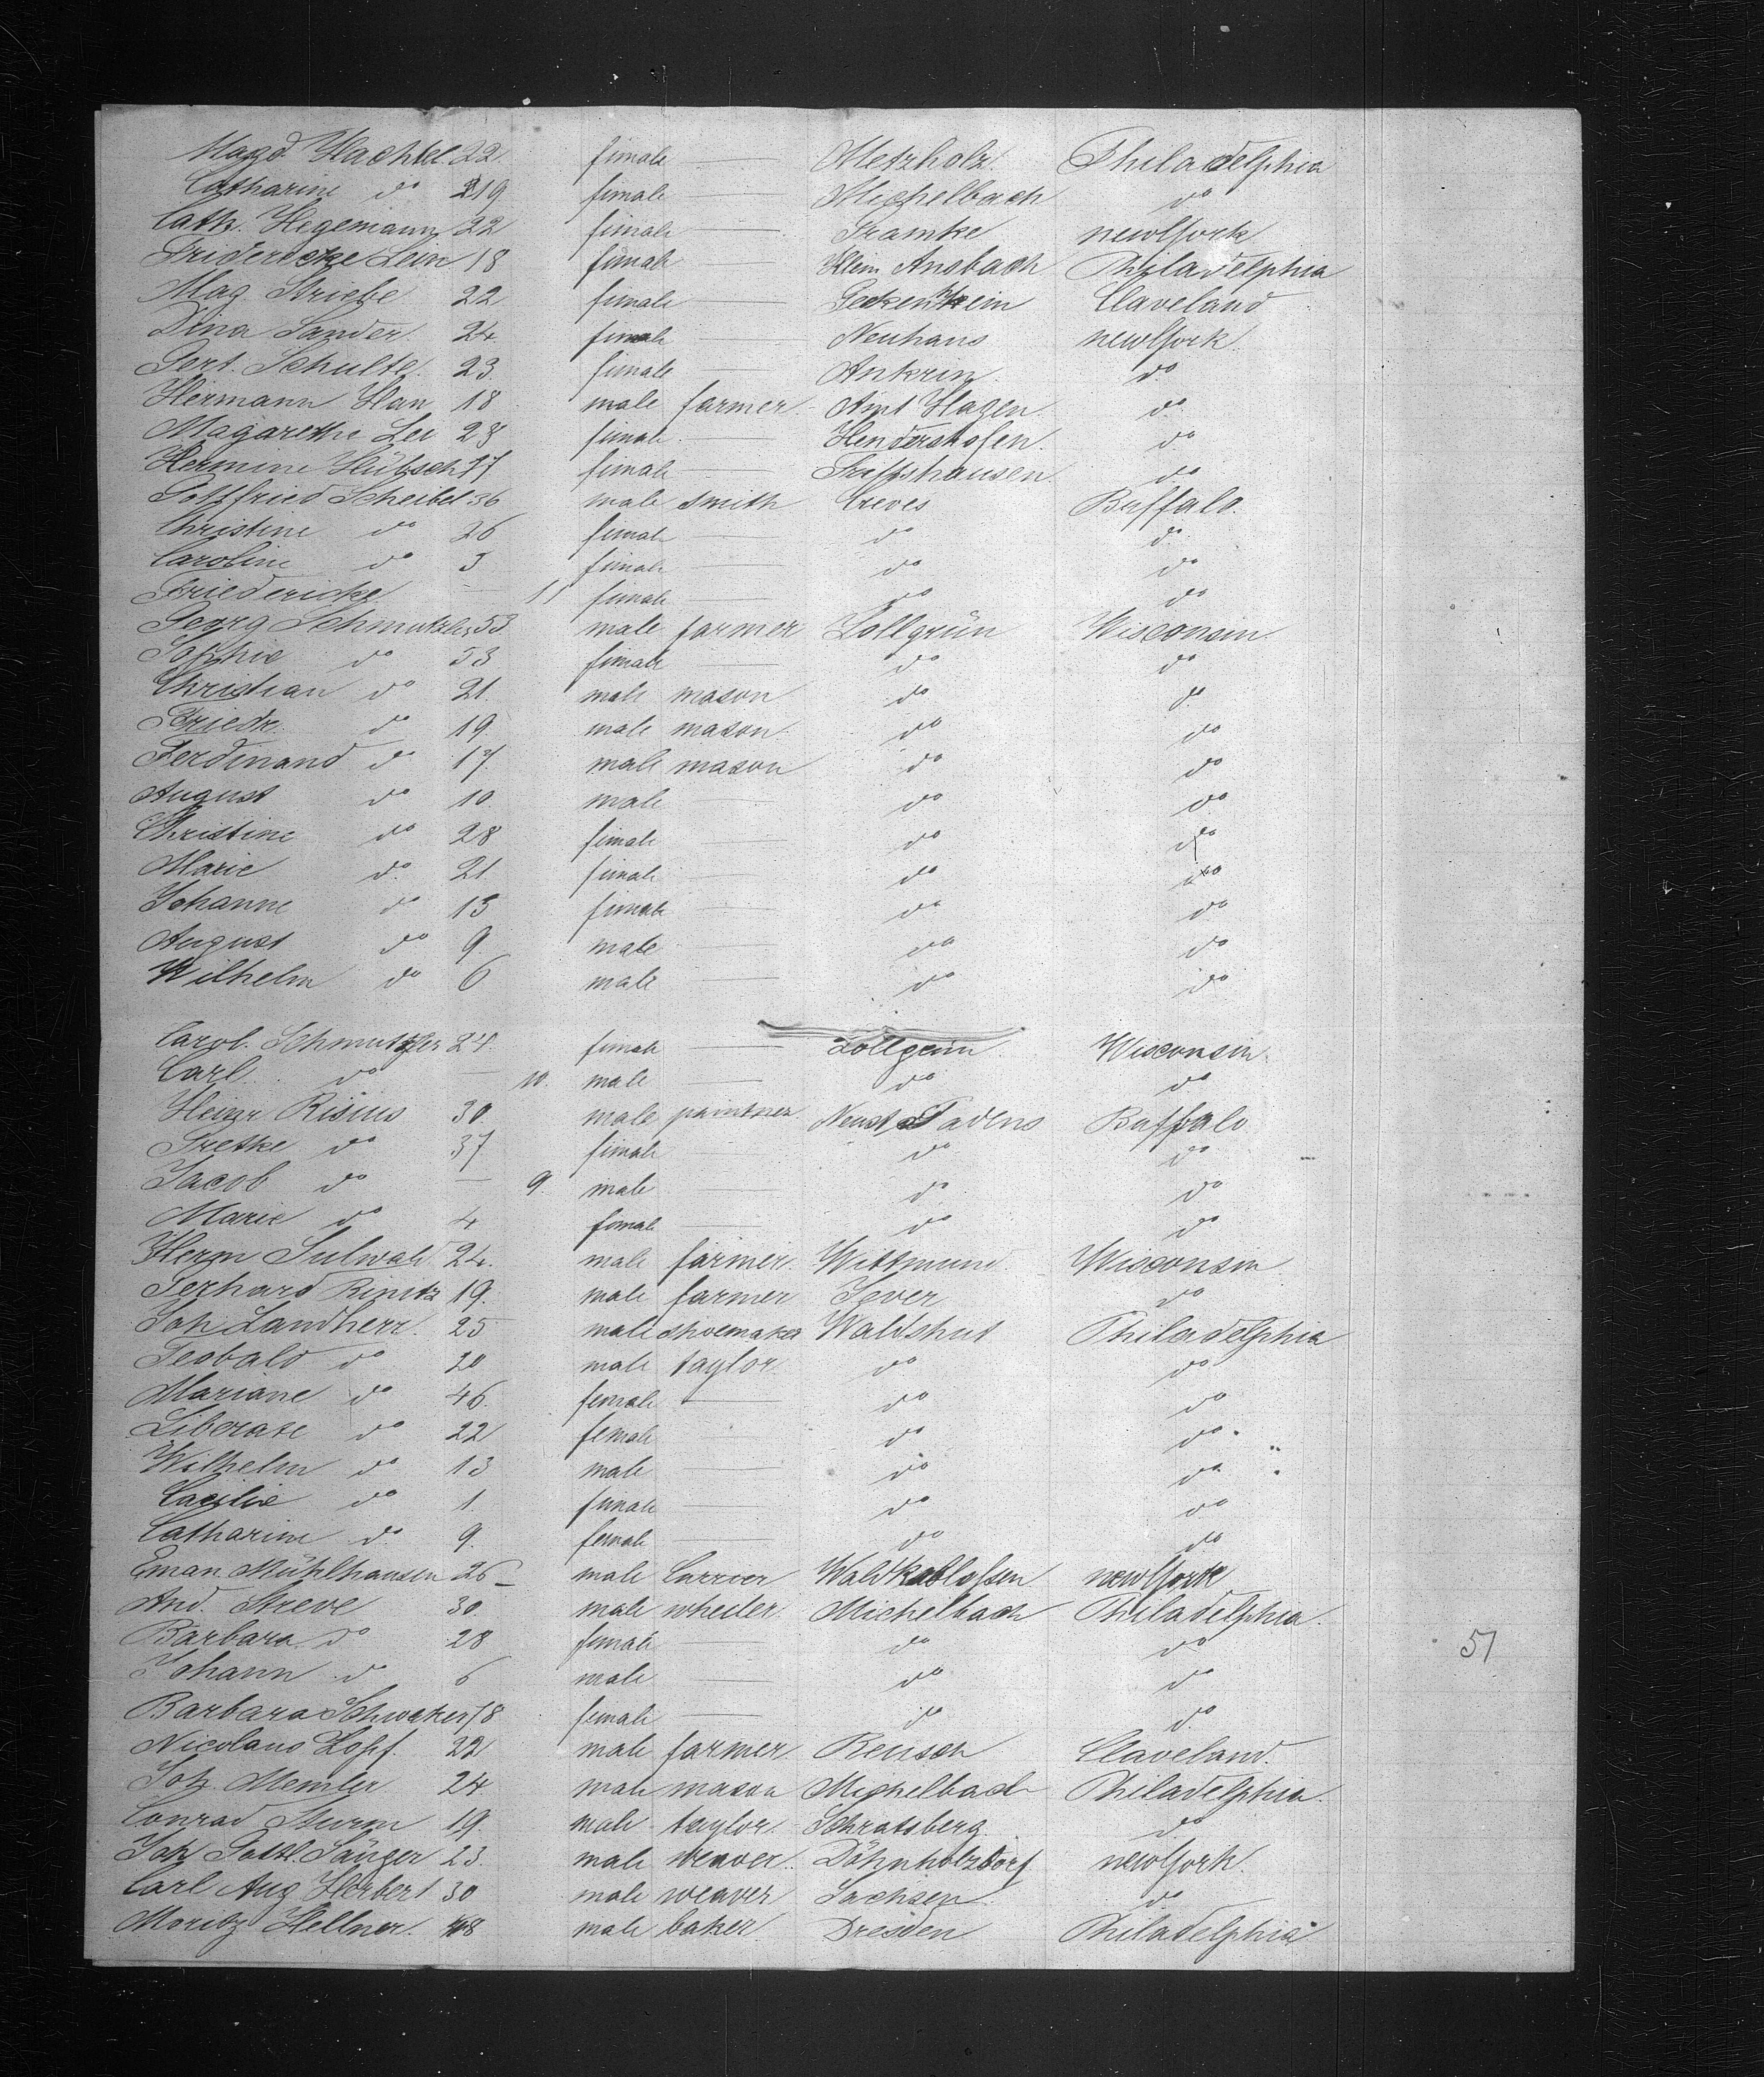 Magd. Hachtel 22 female — Metzholz Philadelphia
Catharine do 19 female — Michelbach do
Cath. Hegemann 22 female — Framke newYork
Friedericke Lein 18 female — Klein Ansbach Philadelphia
Mag. Striebe 22 female — Claveland
Dina Sander 24 female — Neuhaus newYork
Gert. Schulte 23 female — Ankrin do
Hermann Han 18 male farmer Amt Hagen do
Magarethe Lei 23 female — Henderstofen do
Hermine Hübsch 17 female — do
Gottfried Scheibel 36 male smith Creves Buffalo
Christine do 26 female — do do
Caroline do 3 female — do do
Friedericke — 11 female — do do
Georg Schmutzler 53 male farmer Zollgrün Wisconsin
Sophie do 53 female — do do
Christian do 21 male mason do do
Friedr. do 19 male mason do do
Ferdinand do 17 male mason do do
August do 10 male — do do
Christine do 28 female — do do
Marie do 21 female — do do
Johanne do 13 female — do do
August do 9 male — do do
Wilhelm do 6 male — do do
Carol. Schmutzler 24 female — Zollgrün Wisconsin
Carl do — 10 male — do do
Heinr Risius 30 male paintner Neust Gadens Buffalo
Gretke do 37 female — do do
Jacob do — 9 male — do do
Marie do 4 female — do do
Herm Sulwald 24 male farmer Wittmund Wisconsin
Gerhard 19 male farmer Jever do
Joh Landherr 25 male shoemaker Waldshut Philadelphia
Teobald do 20 male taylor do do
Mariane do 46 female — do do
Liberate do 22 female — do do
Wilhelm do 13 male — do do
Cacilie do 1 female — do do
Catharine do 9 female — do do
Eman Mühlhausen 26 male Currier newYork
And. Streve 30 male wheeler Michelbach Philadelphia
Barbara do 28 female — do do
Johann do 6 male — do do
Barbara Schwaker 18 female — do do
Nicolaus Zopf 22 male farmer Reusch Claveland
Joh. Memler 24 male mason Michelbach Philadelphia
Conrad Sturm 19 male taylor Schratsberg do
Joh Gottl. Sänger 23 male weaver newYork
Carl Aug Herbert 30 male weaver Sachsen do
Moritz Hellner male baker Dresden Philadelphia
51